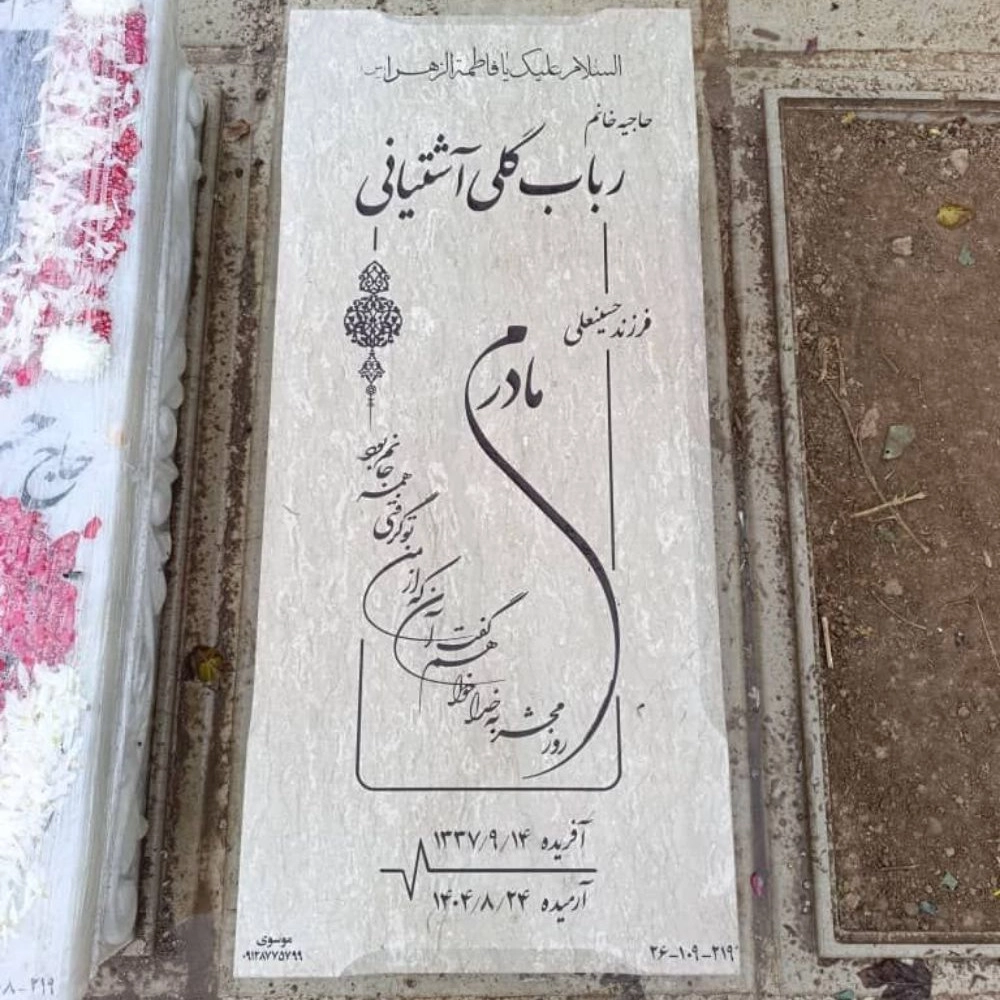 السلام علیک یا فاطمة الزهرا(س)
حاجیه خانم
رباب گلی آشتیانی
فرزند حسینعلی
مادرم
روز محشر به خدا خواهم گفت
آن که از من تو گرفتی همه جانم بود
آفریده ۱۳۳۷/۹/۱۴
آرمیده ۱۴۰۴/۸/۲۴
موسوی
۰۹۱۲۸۷۷۵۷۹۹
۲۶-۱۰۹-۲۱۹
حاج
۸-۲۱۹